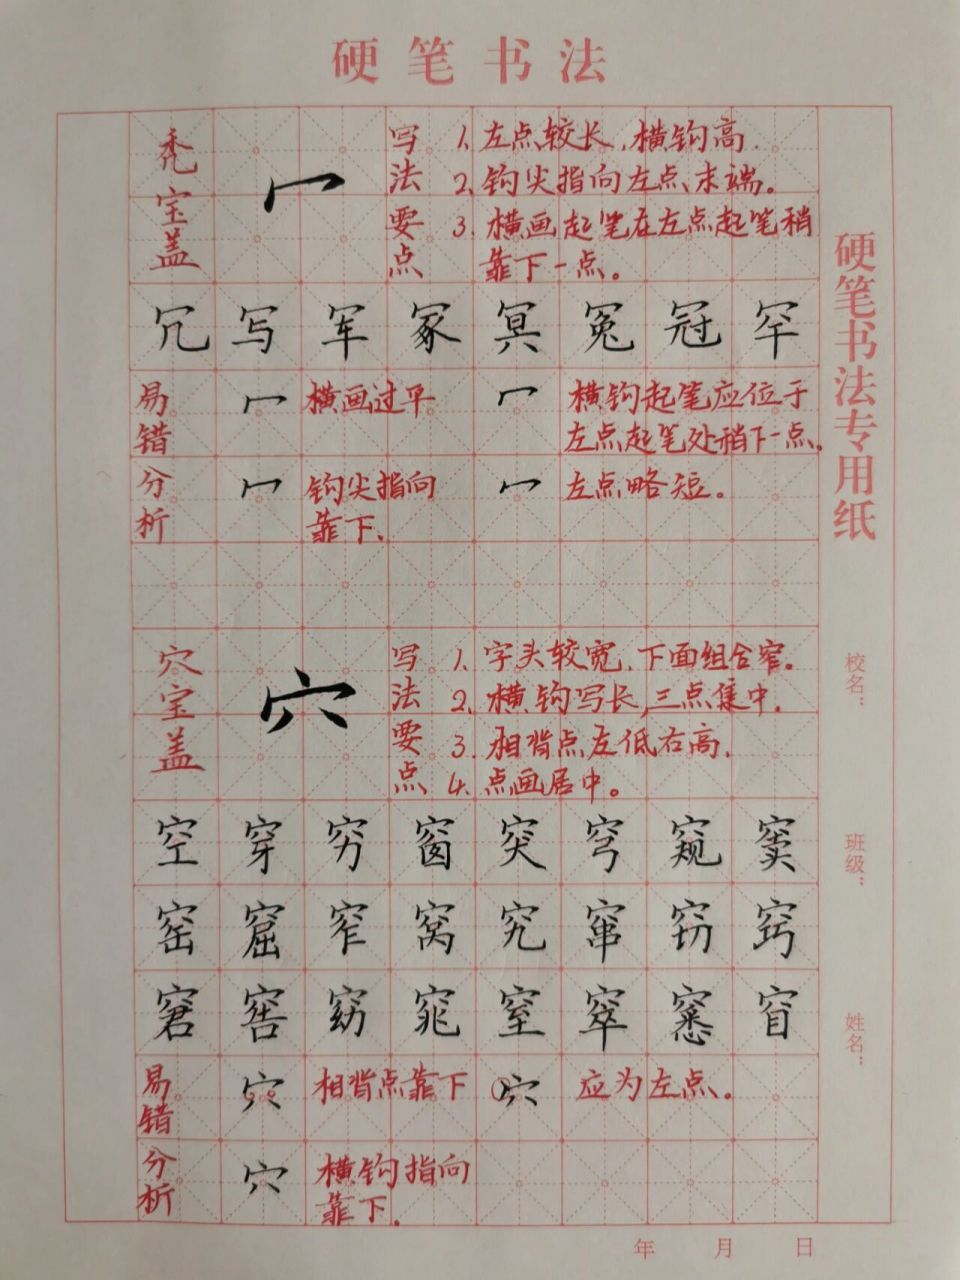 硬笔书法
秃宝盖
冖
写法要点
1. 左点较长,横钩高.
2. 钩尖指向左点末端。
3. 横画起笔在左点起笔稍
靠下一点。
冗 写 军 冢 冥 冤 冠 罕
易错分析
冖 横画过平
冖 横钩起笔应位于
左点起笔处稍下一点.
冖 钩尖指向
靠下.
冖 左点略短。
穴宝盖
穴
写法要点
1. 字头较宽,下面组合窄。
2. 横钩写长,三点集中.
3. 相背点左低右高.
4. 点画居中。
空 穿 穷 窗 突 穹 窥 窦
窑 窟 窄 窝 究 窜 窃 窍
窘 窖 窈 窕 室 窣 窸 窅
易错分析
穴 相背点靠下
穴 应为左点。
穴 横钩指向
靠下.
硬笔书法专用纸
校名:
班级:
姓名:
年 月 日